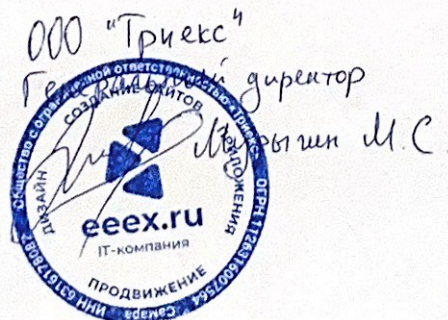 ООО "Триекс"
Генеральный директор
Мурыгин М.С.
Общество с ограниченной ответственностью «Триекс»
ОГРН 1126316007564
Самара
ИНН 6316178087
СОЗДАНИЕ САЙТОВ
ДИЗАЙН
ПРИЛОЖЕНИЯ
eeex.ru
IT-компания
ПРОДВИЖЕНИЕ